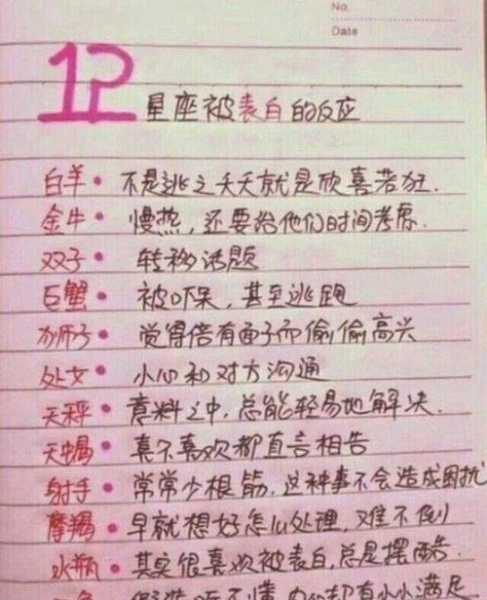 No.
Date
12 星座被表白的反应
白羊·不是逃之夭夭就是欣喜若狂.
金牛·慢热,还要给他们时间考虑.
双子·转移话题
巨蟹·被吓呆,甚至逃跑
狮子·觉得倍有面子而偷偷高兴
处女·小心和对方沟通
天秤·意料之中,总能轻易地解决.
天蝎·喜不喜欢都直言相告
射手·常常少根筋,这种事不会造成困扰
摩羯·早就想好怎么处理,难不倒
水瓶·其实很喜欢被表白,总是摆酷.
假装听不懂,内心却有小小满足